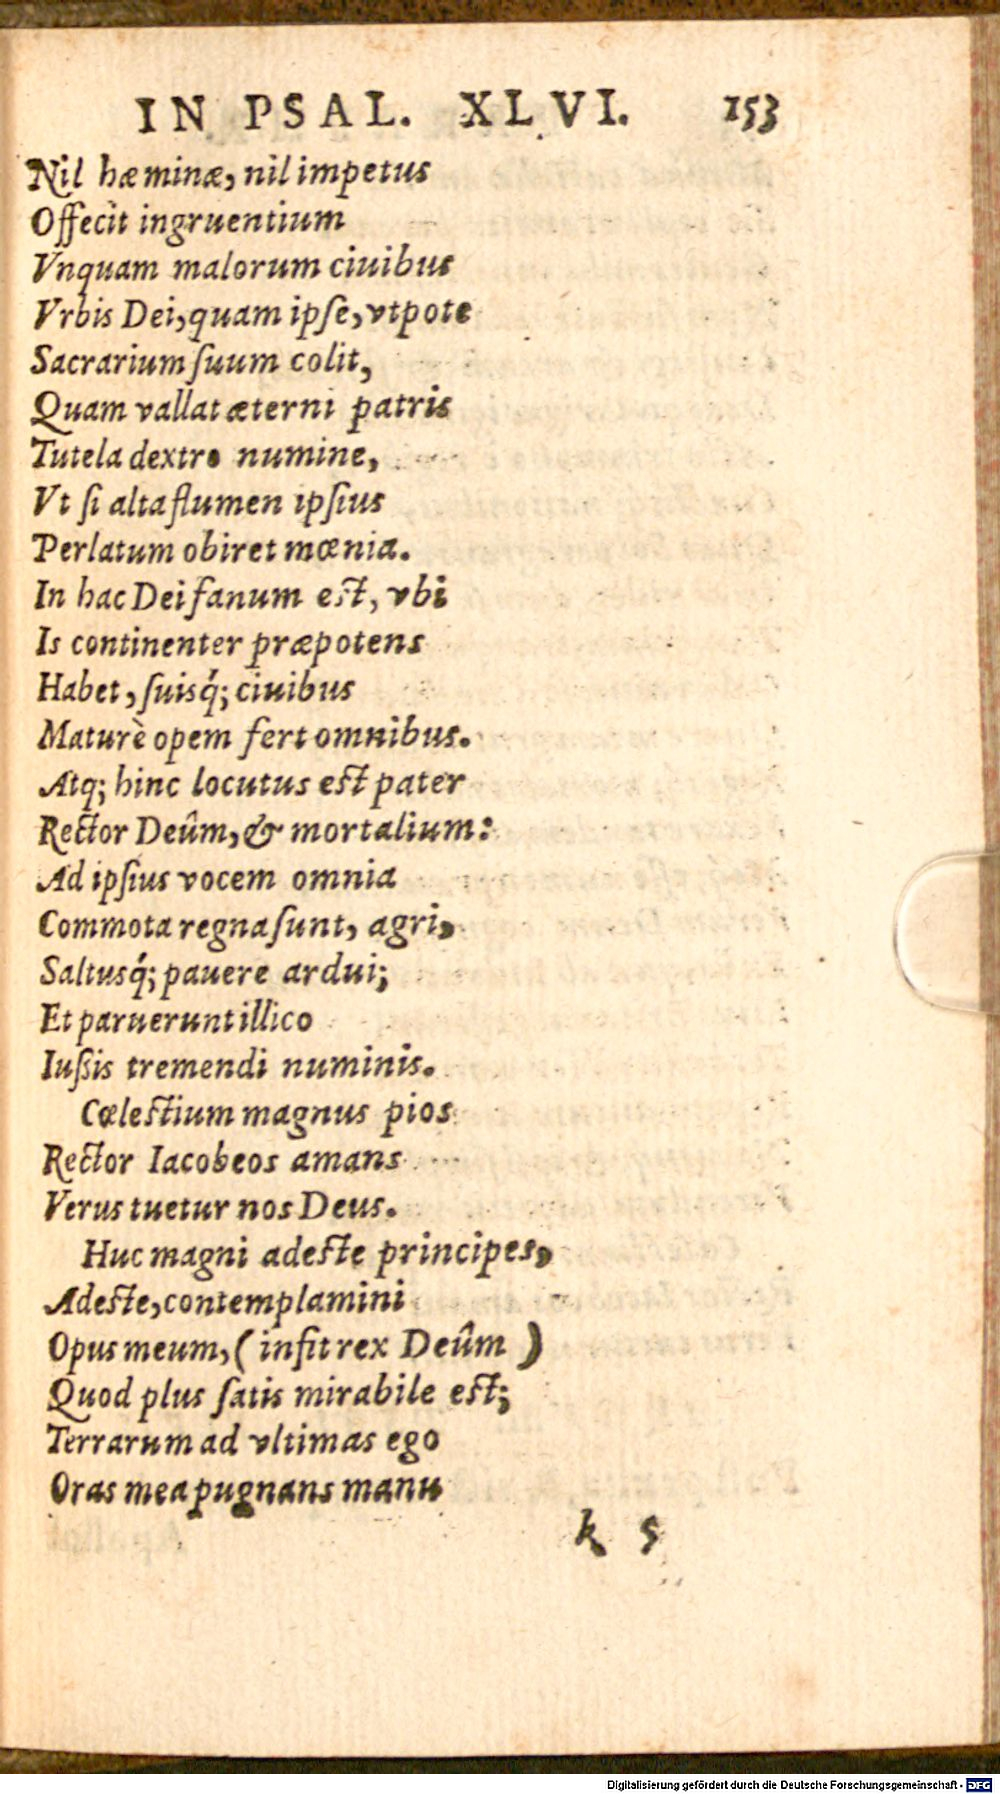 IN PSAL. XLVI. 153
Nil hæ minæ, nil impetus
Offecit ingruentium
Vnquam malorum ciuibus
Vrbis Dei, quam ipſe, vtpote
Sacrarium ſuum colit,
Quam vallat æterni patris
Tutela dextro numine,
Vt ſi alta flumen ipſius
Perlatum obiret mœnia.
In hac Dei fanum eſt, vbi
Is continenter præpotens
Habet, ſuisq́; ciuibus
Maturè opem fert omnibus.
Atq; hinc locutus eſt pater
Rector Deûm, & mortalium:
Ad ipſius vocem omnia
Commota regna ſunt, agri,
Saltusq́; pauere ardui;
Et paruerunt illico
Iuſsis tremendi numinis.
Cœleſtium magnus pios
Rector Iacobeos amans
Verus tuetur nos Deus.
Huc magni adeſte principes,
Adeſte, contemplamini
Opus meum, (infit rex Deûm)
Quod plus ſatis mirabile eſt;
Terrarum ad vltimas ego
Oras mea pugnans manu
k 5
Digitalisierung gefördert durch die Deutsche Forschungsgemeinschaft - DFG